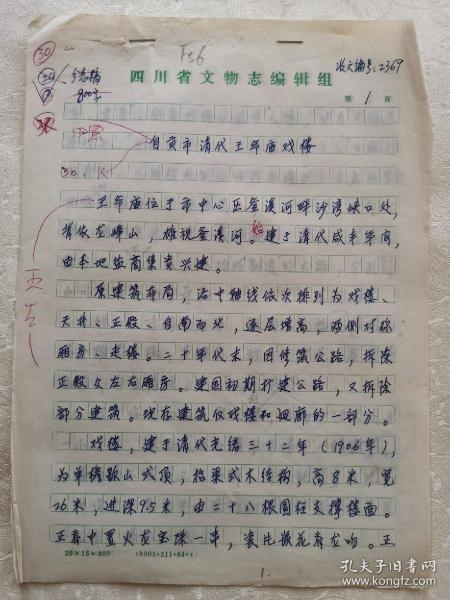 F56
收文编号：2369
30
800字
四川省文物志编辑组
第 1 页
自贡市清代王爷庙戏楼
30.
王爷庙位于市中心区釜溪河畔沙湾峡口处，
背依龙峰山，雄视釜溪河。始建于清代咸丰年间，
由本地盐商集资兴建。
原建筑布局，沿中轴线依次排列为戏楼、
天井、正殿、自南而北，逐层增高，两侧对称
厢房、走楼。二十年代末，因修筑公路，拆除
正殿及左右厢房。建国初期扩建公路，又拆除
部分建筑。现存建筑仅戏楼和回廊的一部分。
戏楼，建于清代光绪三十二年（1906年），
为单檐歇山式顶，抬梁式木结构，高8米，宽
26米，进深9.5米，由二十八根圆柱支撑楼面。
正脊中置火龙宝珠一串，瓷片嵌花脊龙吻。正
20×15=300
1.
孔夫子旧书网
book.kongfz.com